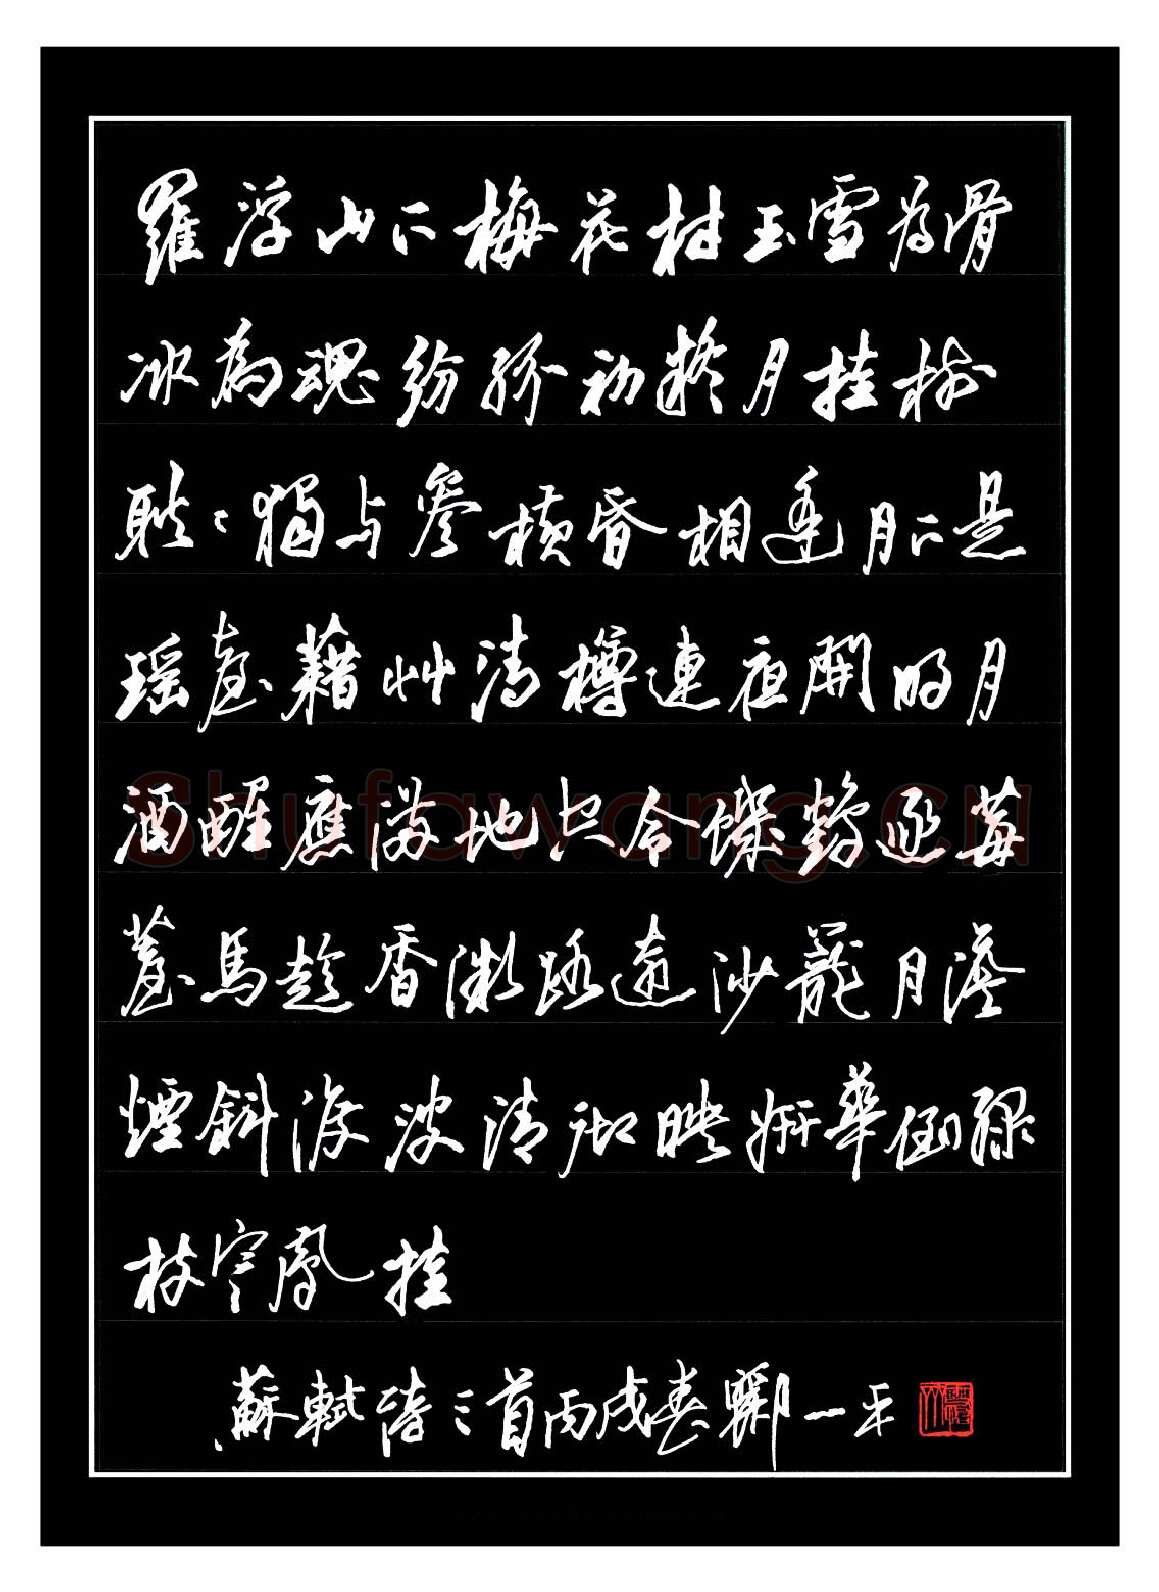 羅浮山下梅花村玉雪為骨
冰為魂紛紛初疑月挂樹
耿々獨与參橫昏相逢月下是
瑶臺藉艸清樽連夜開明月
酒醒應滿地只令蝶鶴逐莓
薹馬趁香微路遠沙籠月淡
煙斜渡波清澈映妍華倒綠
枝寒鳳挂
蘇軾詩三首丙戌春酈一平
Shufawang.cn